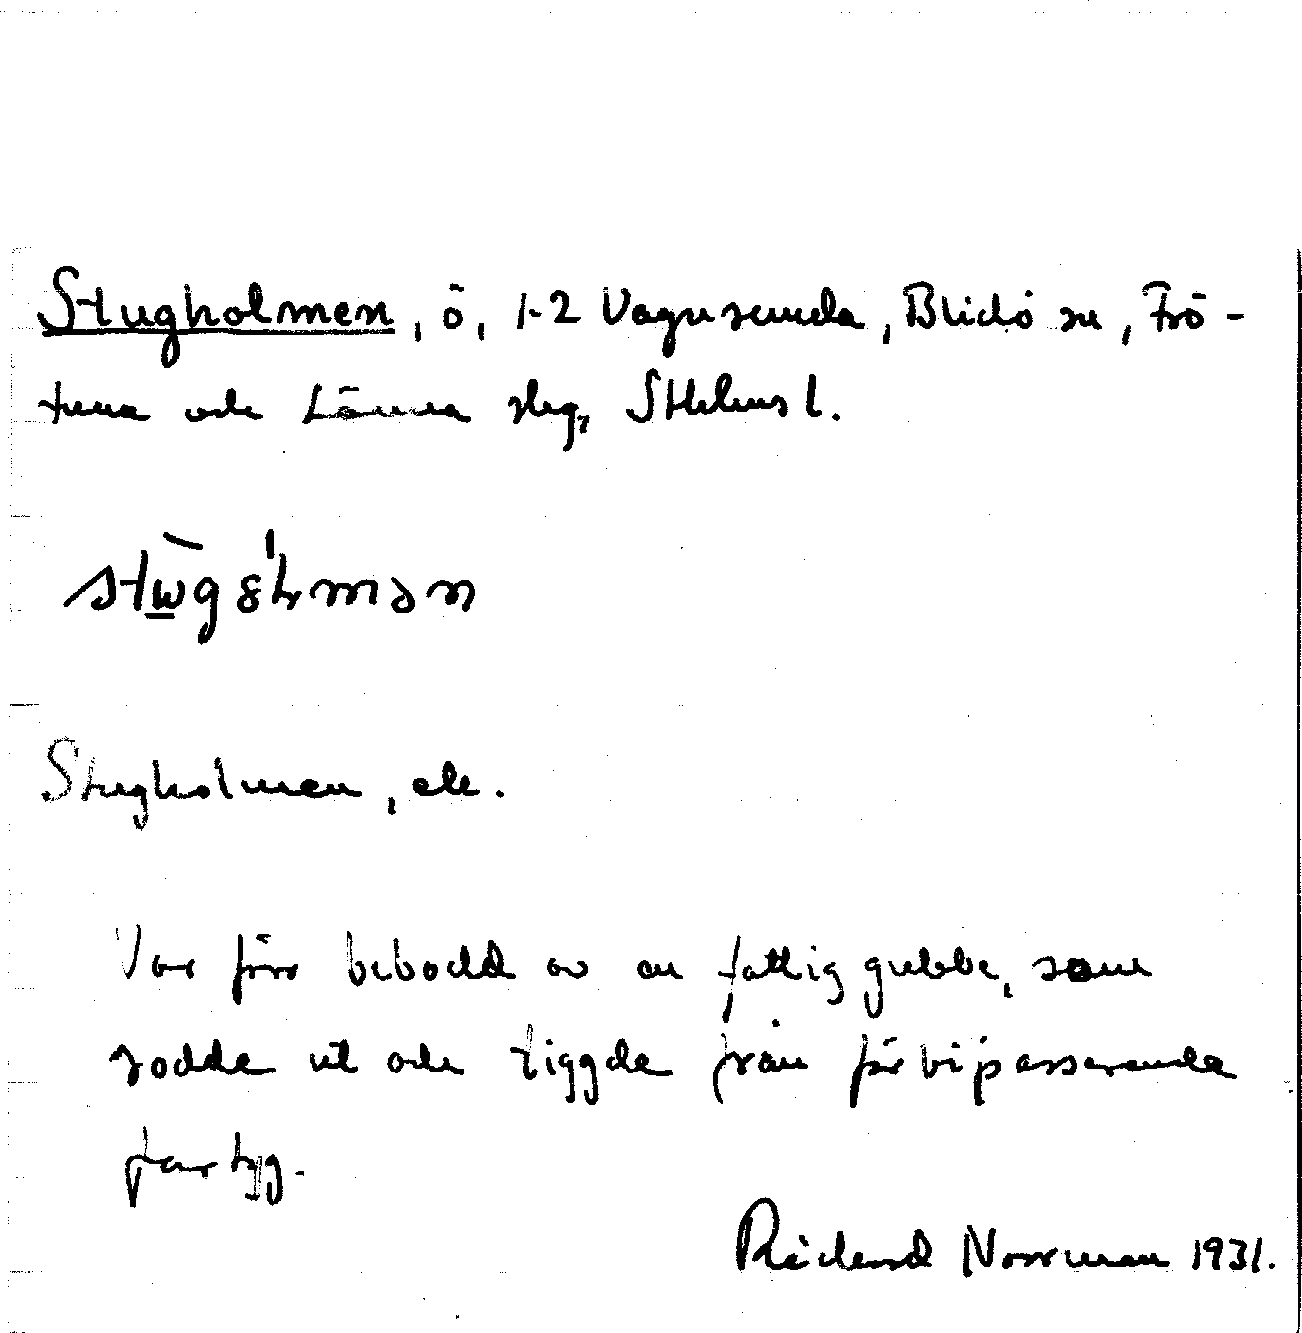 Stugholmen, ö, 1-2 Vagnsunda, Blidö sn, Frö-
tuna och Länna slg, Sthlms l.
Stugholmen, ek.
Var förr bebodd av en fattig gubbe, som
rodde ut och tiggde från förbipasserande
fartyg.
Rickard Norrman 1931.